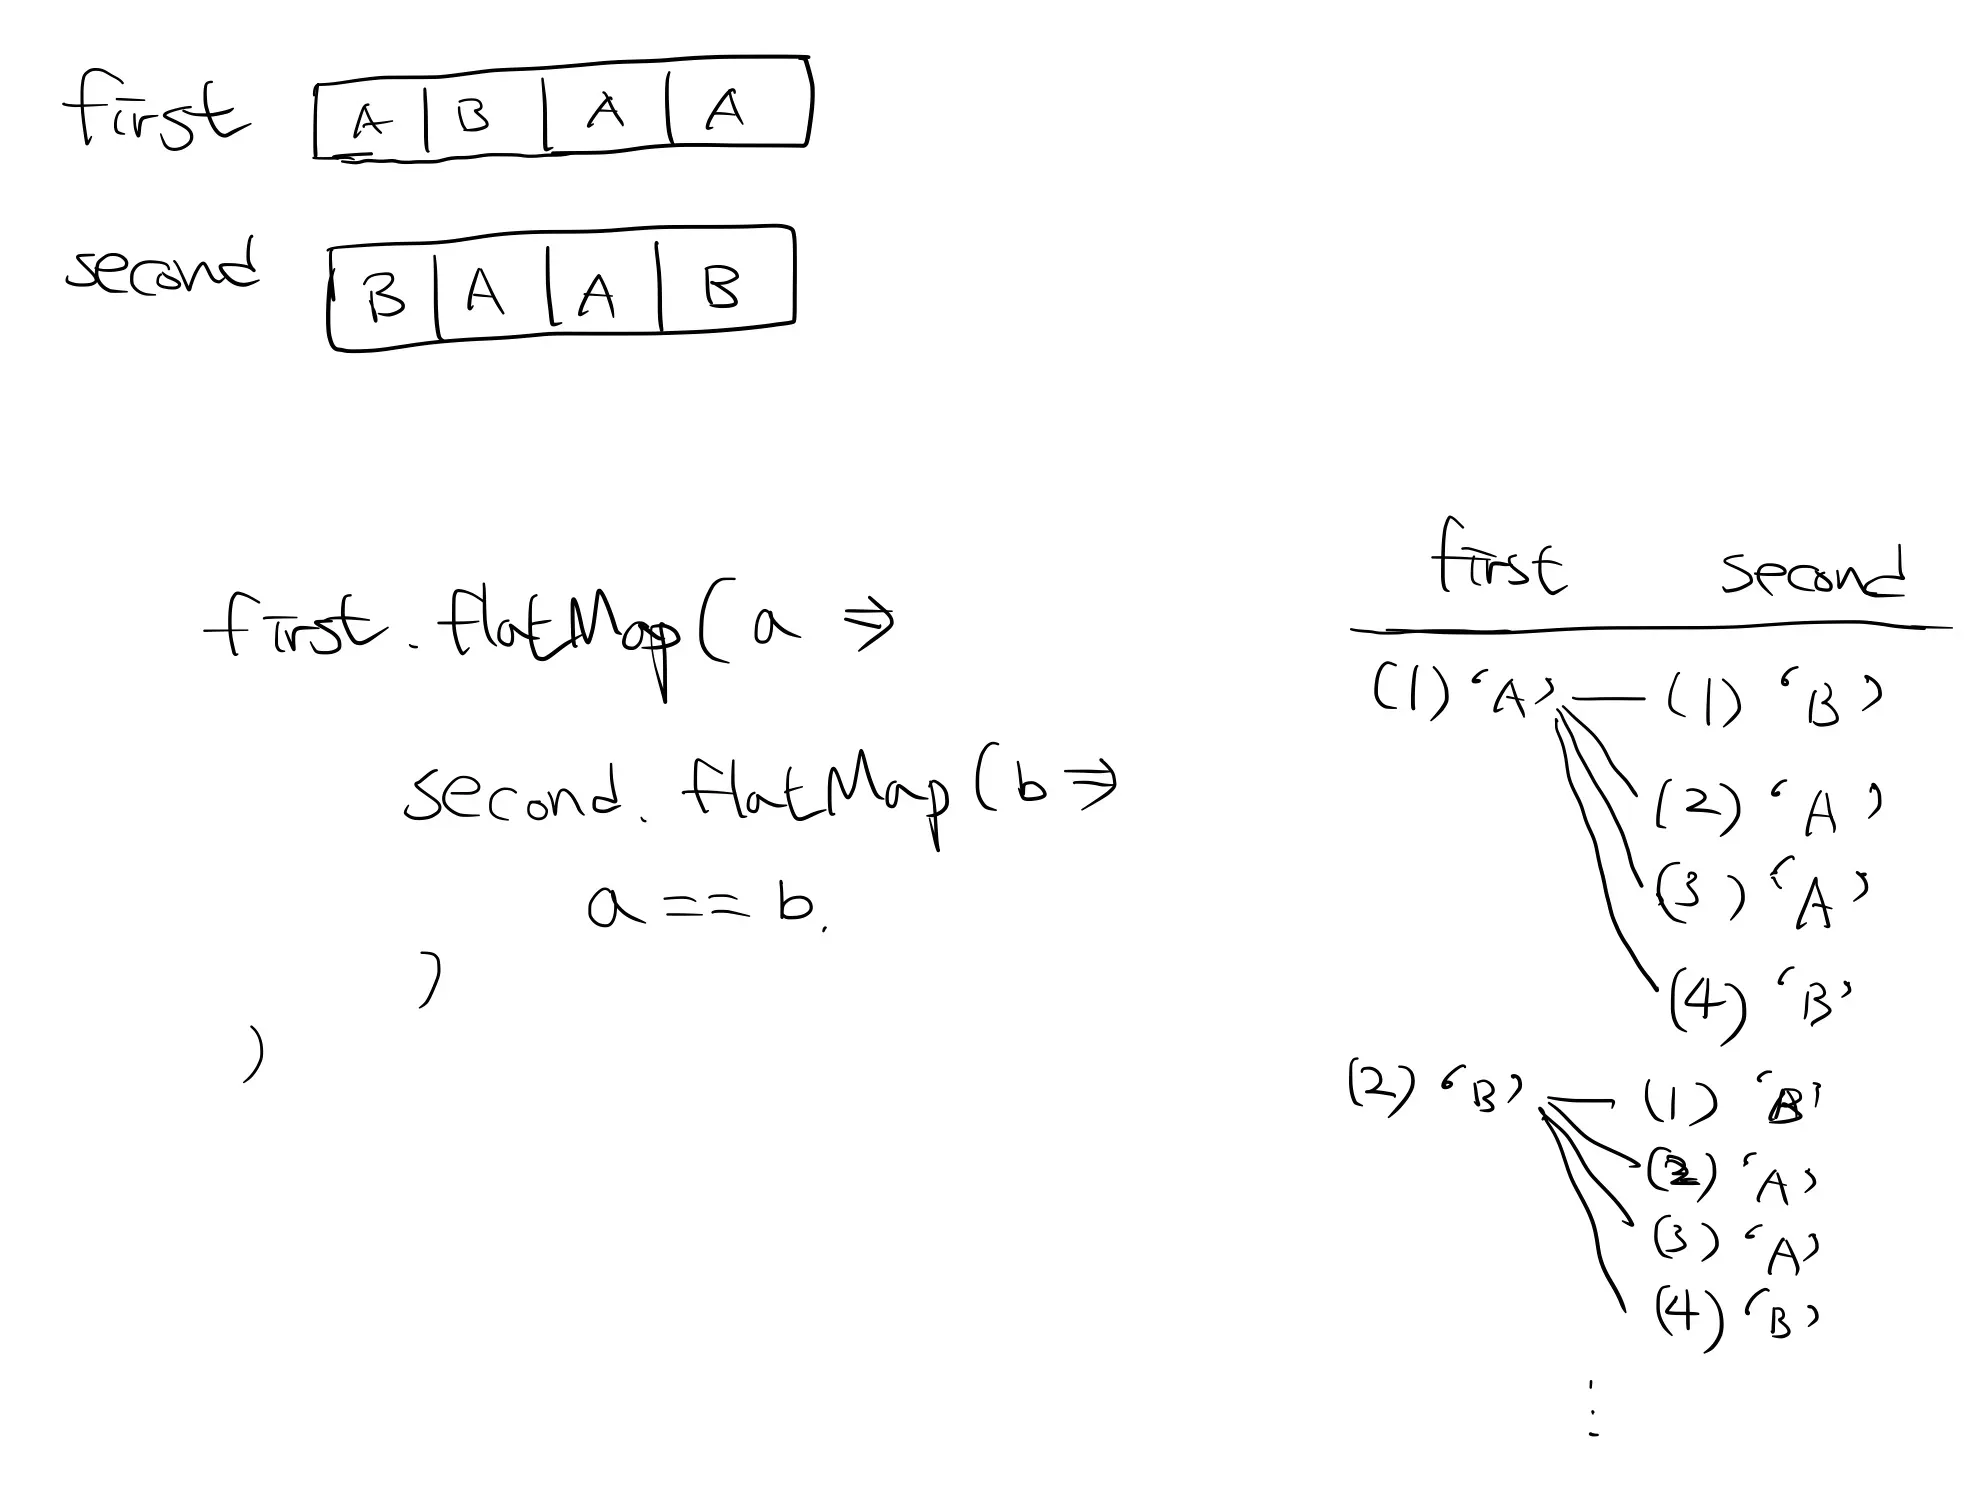 first A B A A
second B A A B
first.flatMap(a ⇒
second.flatMap(b ⇒
a == b.
)
)
first second
(1) 'A' — (1) 'B'
(2) 'A'
(3) 'A'
(4) 'B'
(2) 'B' — (1) 'B'
(2) 'A'
(3) 'A'
(4) 'B'
⋮